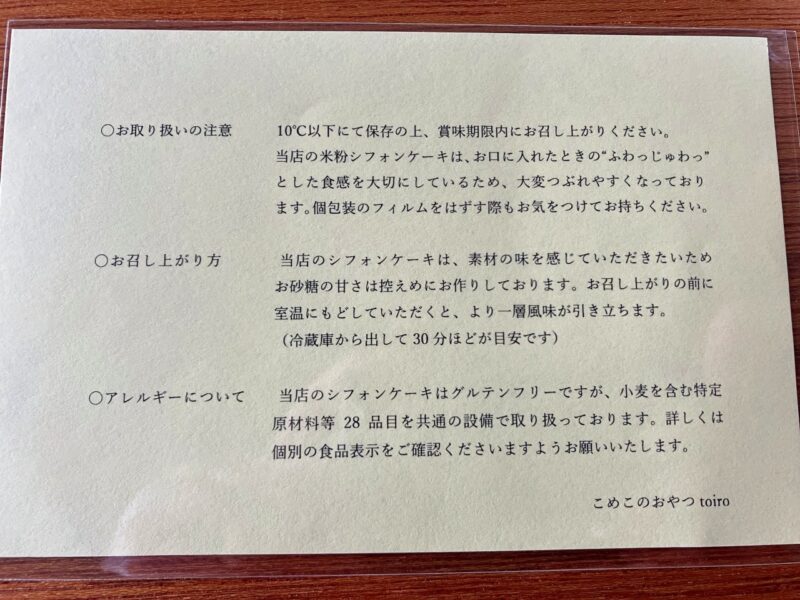 ○お取り扱いの注意 10℃以下にて保存の上、賞味期限内にお召し上がりください。
当店の米粉シフォンケーキは、お口に入れたときの“ふわっじゅわっ”
とした食感を大切にしているため、大変つぶれやすくなっており
ます。個包装のフィルムをはずす際もお気をつけてお持ちください。
○お召し上がり方 当店のシフォンケーキは、素材の味を感じていただきたいため
お砂糖の甘さは控えめにお作りしております。お召し上がりの前に
室温にもどしていただくと、より一層風味が引き立ちます。
（冷蔵庫から出して 30 分ほどが目安です）
○アレルギーについて 当店のシフォンケーキはグルテンフリーですが、小麦を含む特定
原材料等 28 品目を共通の設備で取り扱っております。詳しくは
個別の食品表示をご確認くださいますようお願いいたします。
こめこのおやつ toiro